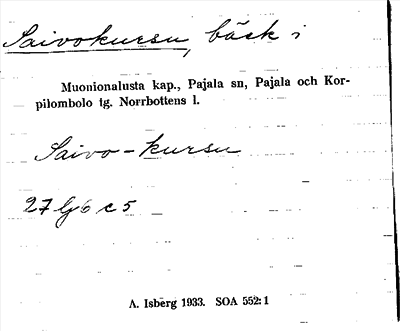 Saivokursu, bäck i
Muonionalusta kap., Pajala sn, Pajala och Kor-
pilombolo tg. Norrbottens l.
Saivo-kursu
27 c 5
A. Isberg 1933. SOA 552:1